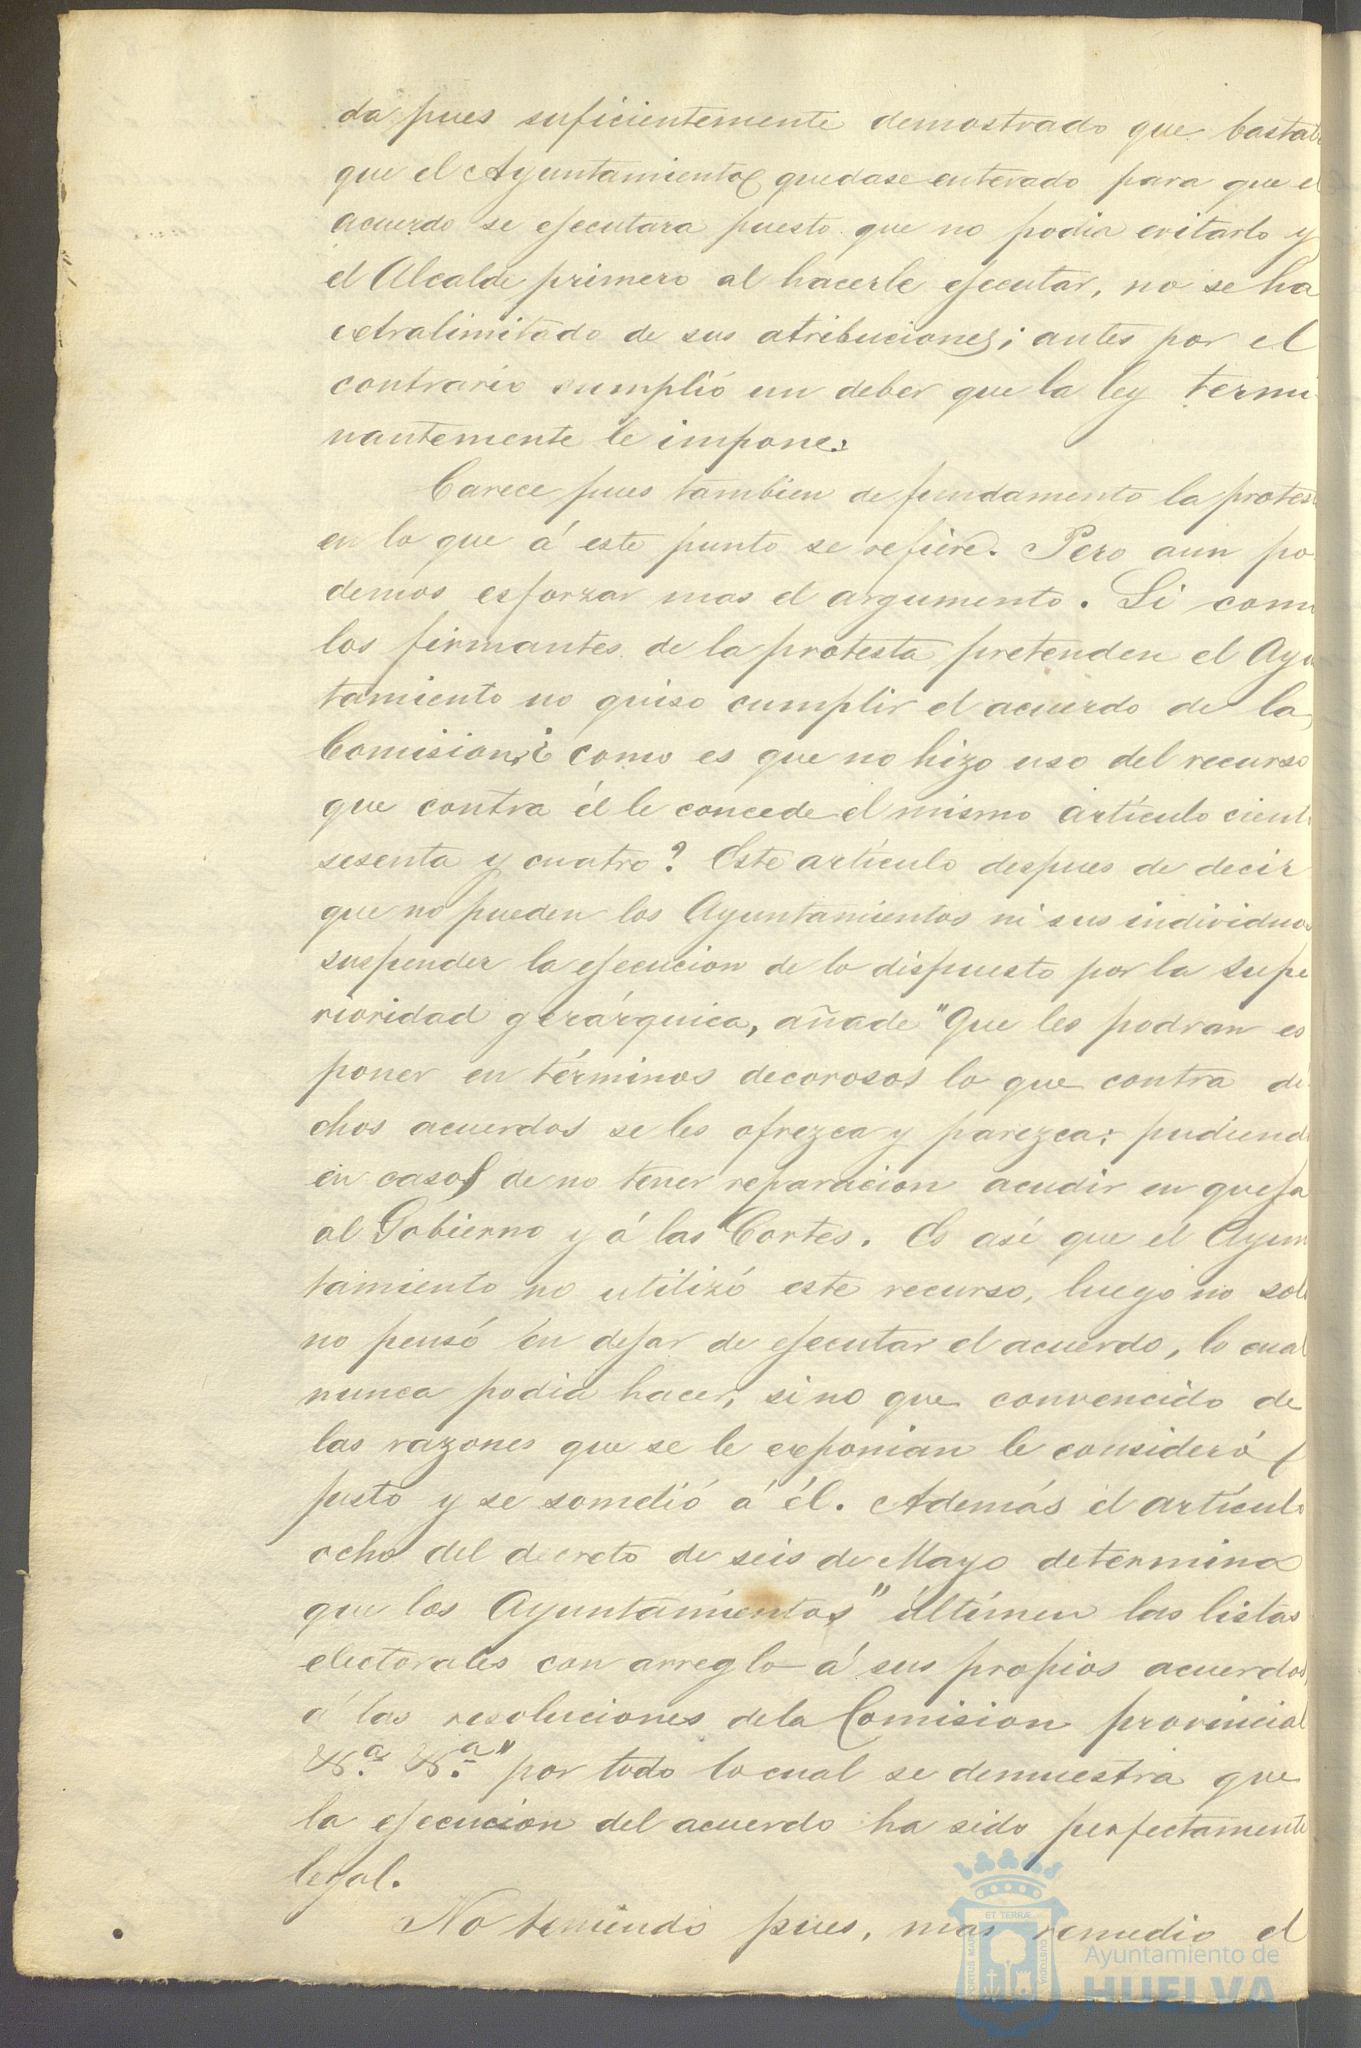 da pues suficientemente demostrado que bastab
que el Ayuntamiento quedase enterado para que el
acuerdo se ejecutara puesto que no podia evitarlo y
el Alcalde primero al hacerle ejecutar, no se ha
extralimitado de sus atribuciones; antes por el
contrario cumplió un deber que la ley termi
nantemente le impone.
Carece pues tambien de fundamento la protes
en lo que á este punto se refiere. Pero aun po
demos esforzar mas el argumento. Si como
los firmantes de la protesta pretenden el Ayu
tamiento no quiso cumplir el acuerdo de la
Comision ¿como es que no hizo uso del recurso
que contra él le concede el mismo artículo cient
sesenta y cuatro? Este artículo despues de decir
que no pueden los Ayuntamientos ni sus individuos
suspender la ejecucion de lo dispuesto por la supe
rioridad gerárquica, añade "Que les podran es
poner en términos decorosos lo que contra di
chos acuerdos se les ofrezca y parezca; pudiend
en caso de no tener reparacion acudir en queja
al Gobierno y á las Cortes. Es así que el Ayun
tamiento no utilizó este recurso, luego no sol
no pensó en dejar de ejecutar el acuerdo, lo cual
nunca podia hacer, sino que convencido de
las razones que se le exponian le consideró
justo y se sometió á él. Además el artícul
ocho del decreto de seis de Mayo determina
que los Ayuntamientos "últimen las listas
electorales con arreglo á sus propios acuerdos
á las resoluciones de la Comision provincial
&ª &ª" por todo lo cual se demuestra que
la ejecucion del acuerdo ha sido perfectamente
legal.
No teniendo pues, mas remedio el
ET TERRÆ
PORTUS MARIS
CUSTODIA
Ayuntamiento de
HUELVA